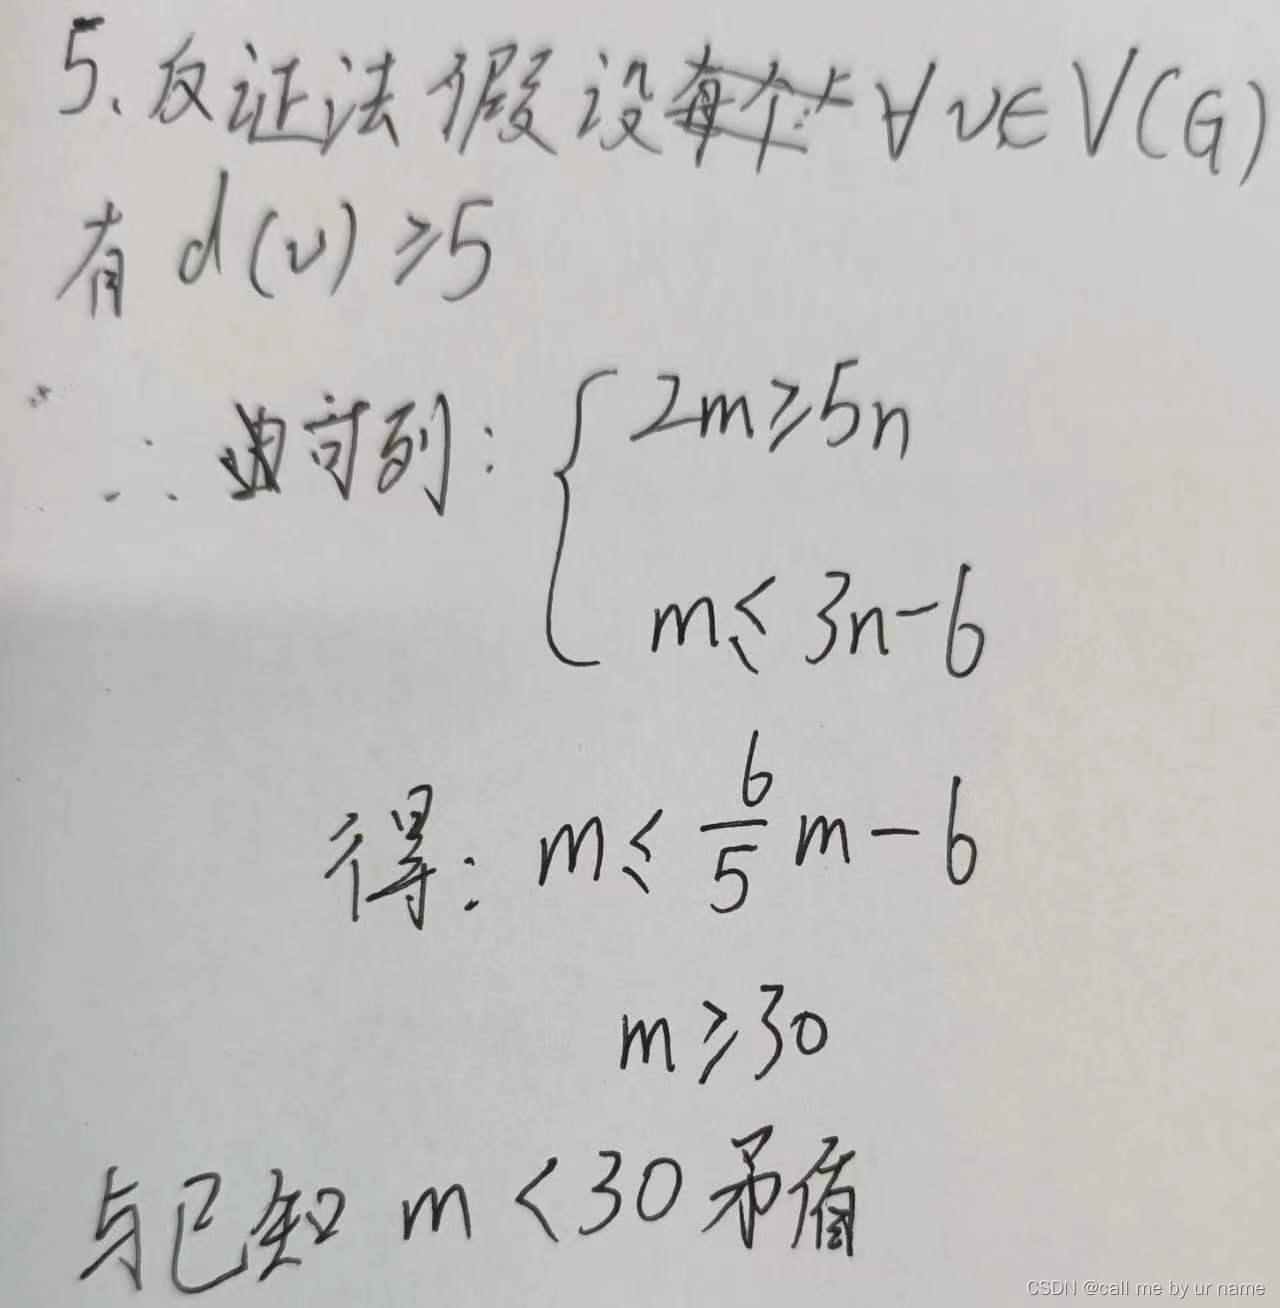 5、反证法 假设 ∀v∈V(G)
有 d(v)≥5
∴ 由可列: { 2m≥5n
m≤3n-6
得: m≤6/5 m-6
m≥30
与已知 m<30 矛盾
CSDN @call me by ur name